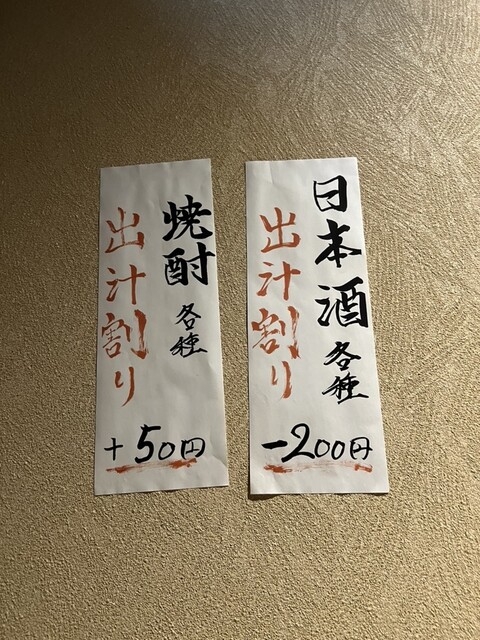 日本酒 各種
出汁割り
-200円
焼酎 各種
出汁割り
+50円